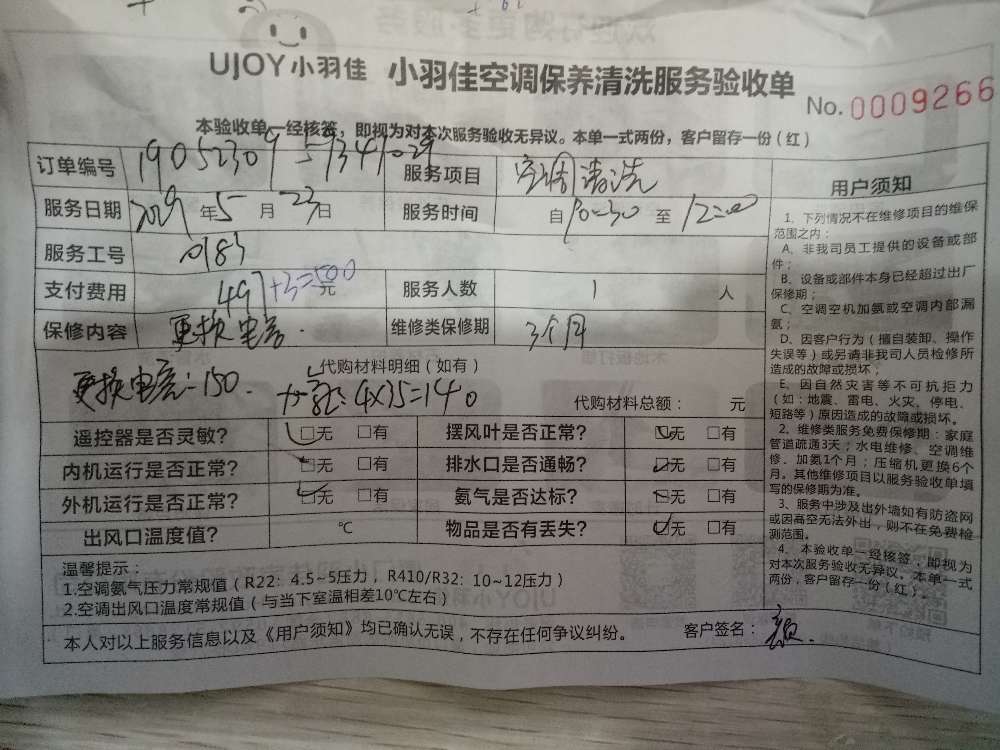 UJOY小羽佳 小羽佳空调保养清洗服务验收单
No. 0009266
本验收单一经核签，即视为对本次服务验收无异议。本单一式两份，客户留存一份(红)
订单编号 190523095934029 服务项目 空调清洗
服务日期 2019 年 5 月 23 日 服务时间 自 10:30 至 12:00
服务工号 0183
支付费用 497+3=500 元 服务人数 1 人
保修内容 更换电容. 维修类保修期 3个月
代购材料明细(如有)
更换电容:150. 4×35=140
代购材料总额: 元
遥控器是否灵敏? □无 □有 摆风叶是否正常? □无 □有
内机运行是否正常? □无 □有 排水口是否通畅? □无 □有
外机运行是否正常? □无 □有 氨气是否达标? □无 □有
出风口温度值? ℃ 物品是否有丢失? □无 □有
温馨提示:
1.空调氨气压力常规值(R22: 4.5~5压力, R410/R32: 10~12压力)
2.空调出风口温度常规值(与当下室温相差10℃左右)
本人对以上服务信息以及《用户须知》均已确认无误，不存在任何争议纠纷。 客户签名:
用户须知
1、下列情况不在维修项目的维保
范围之内:
A、非我司员工提供的设备或部
件;
B、设备或部件本身已经超过出厂
保修期;
C、空调空机加氨或空调内部漏
氨;
D、因客户行为(擅自装卸、操作
失误等)或另请非我司人员检修所
造成的故障或损坏;
E、因自然灾害等不可抗拒力
(如:地震、雷电、火灾、停电、
短路等)原因造成的故障或损坏。
2、维修类服务免费保修期:家庭
管道疏通3天;水电维修、空调维
修、加氨1个月;压缩机更换6个
月。其他维修项目以服务验收单填
写的保修期为准。
3、服务中涉及出外墙如有防盗网
或因高空无法外出，则不在免费检
测范围。
4、本验收单一经核签，即视为
对本次服务验收无异议。本单一式
两份，客户留存一份(红)。